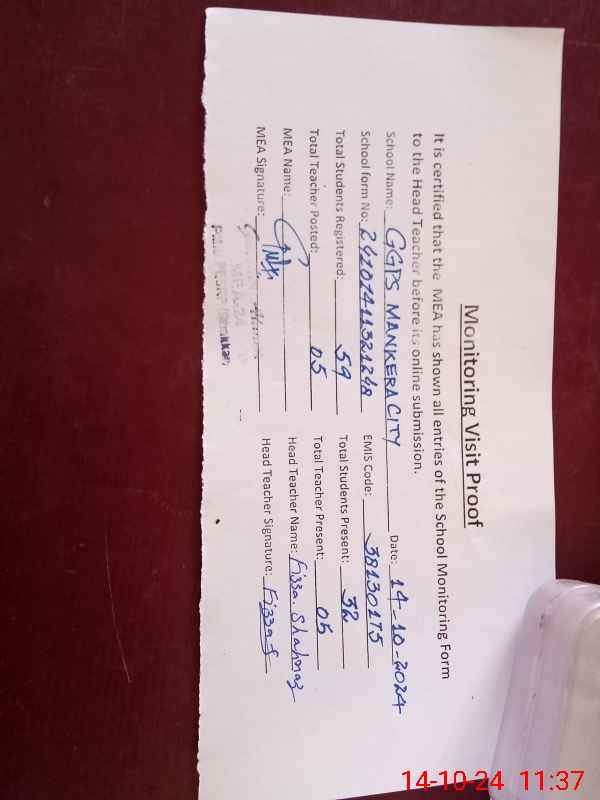 Monitoring Visit Proof
It is certified that the MEA has shown all entries of the School Monitoring Form
to the Head Teacher before its online submission.
School Name: GGPS MANKERA CITY Date: 14-10-2024
School form No: EMIS Code: 38130175
Total Students Registered: 59 Total Students Present: 32
Total Teacher Posted: 05 Total Teacher Present: 05
MEA Name: Head Teacher Name: Fizza. Shahnaz
MEA Signature: Head Teacher Signature: Fizza S
MEA-24
14-10-24 11:37